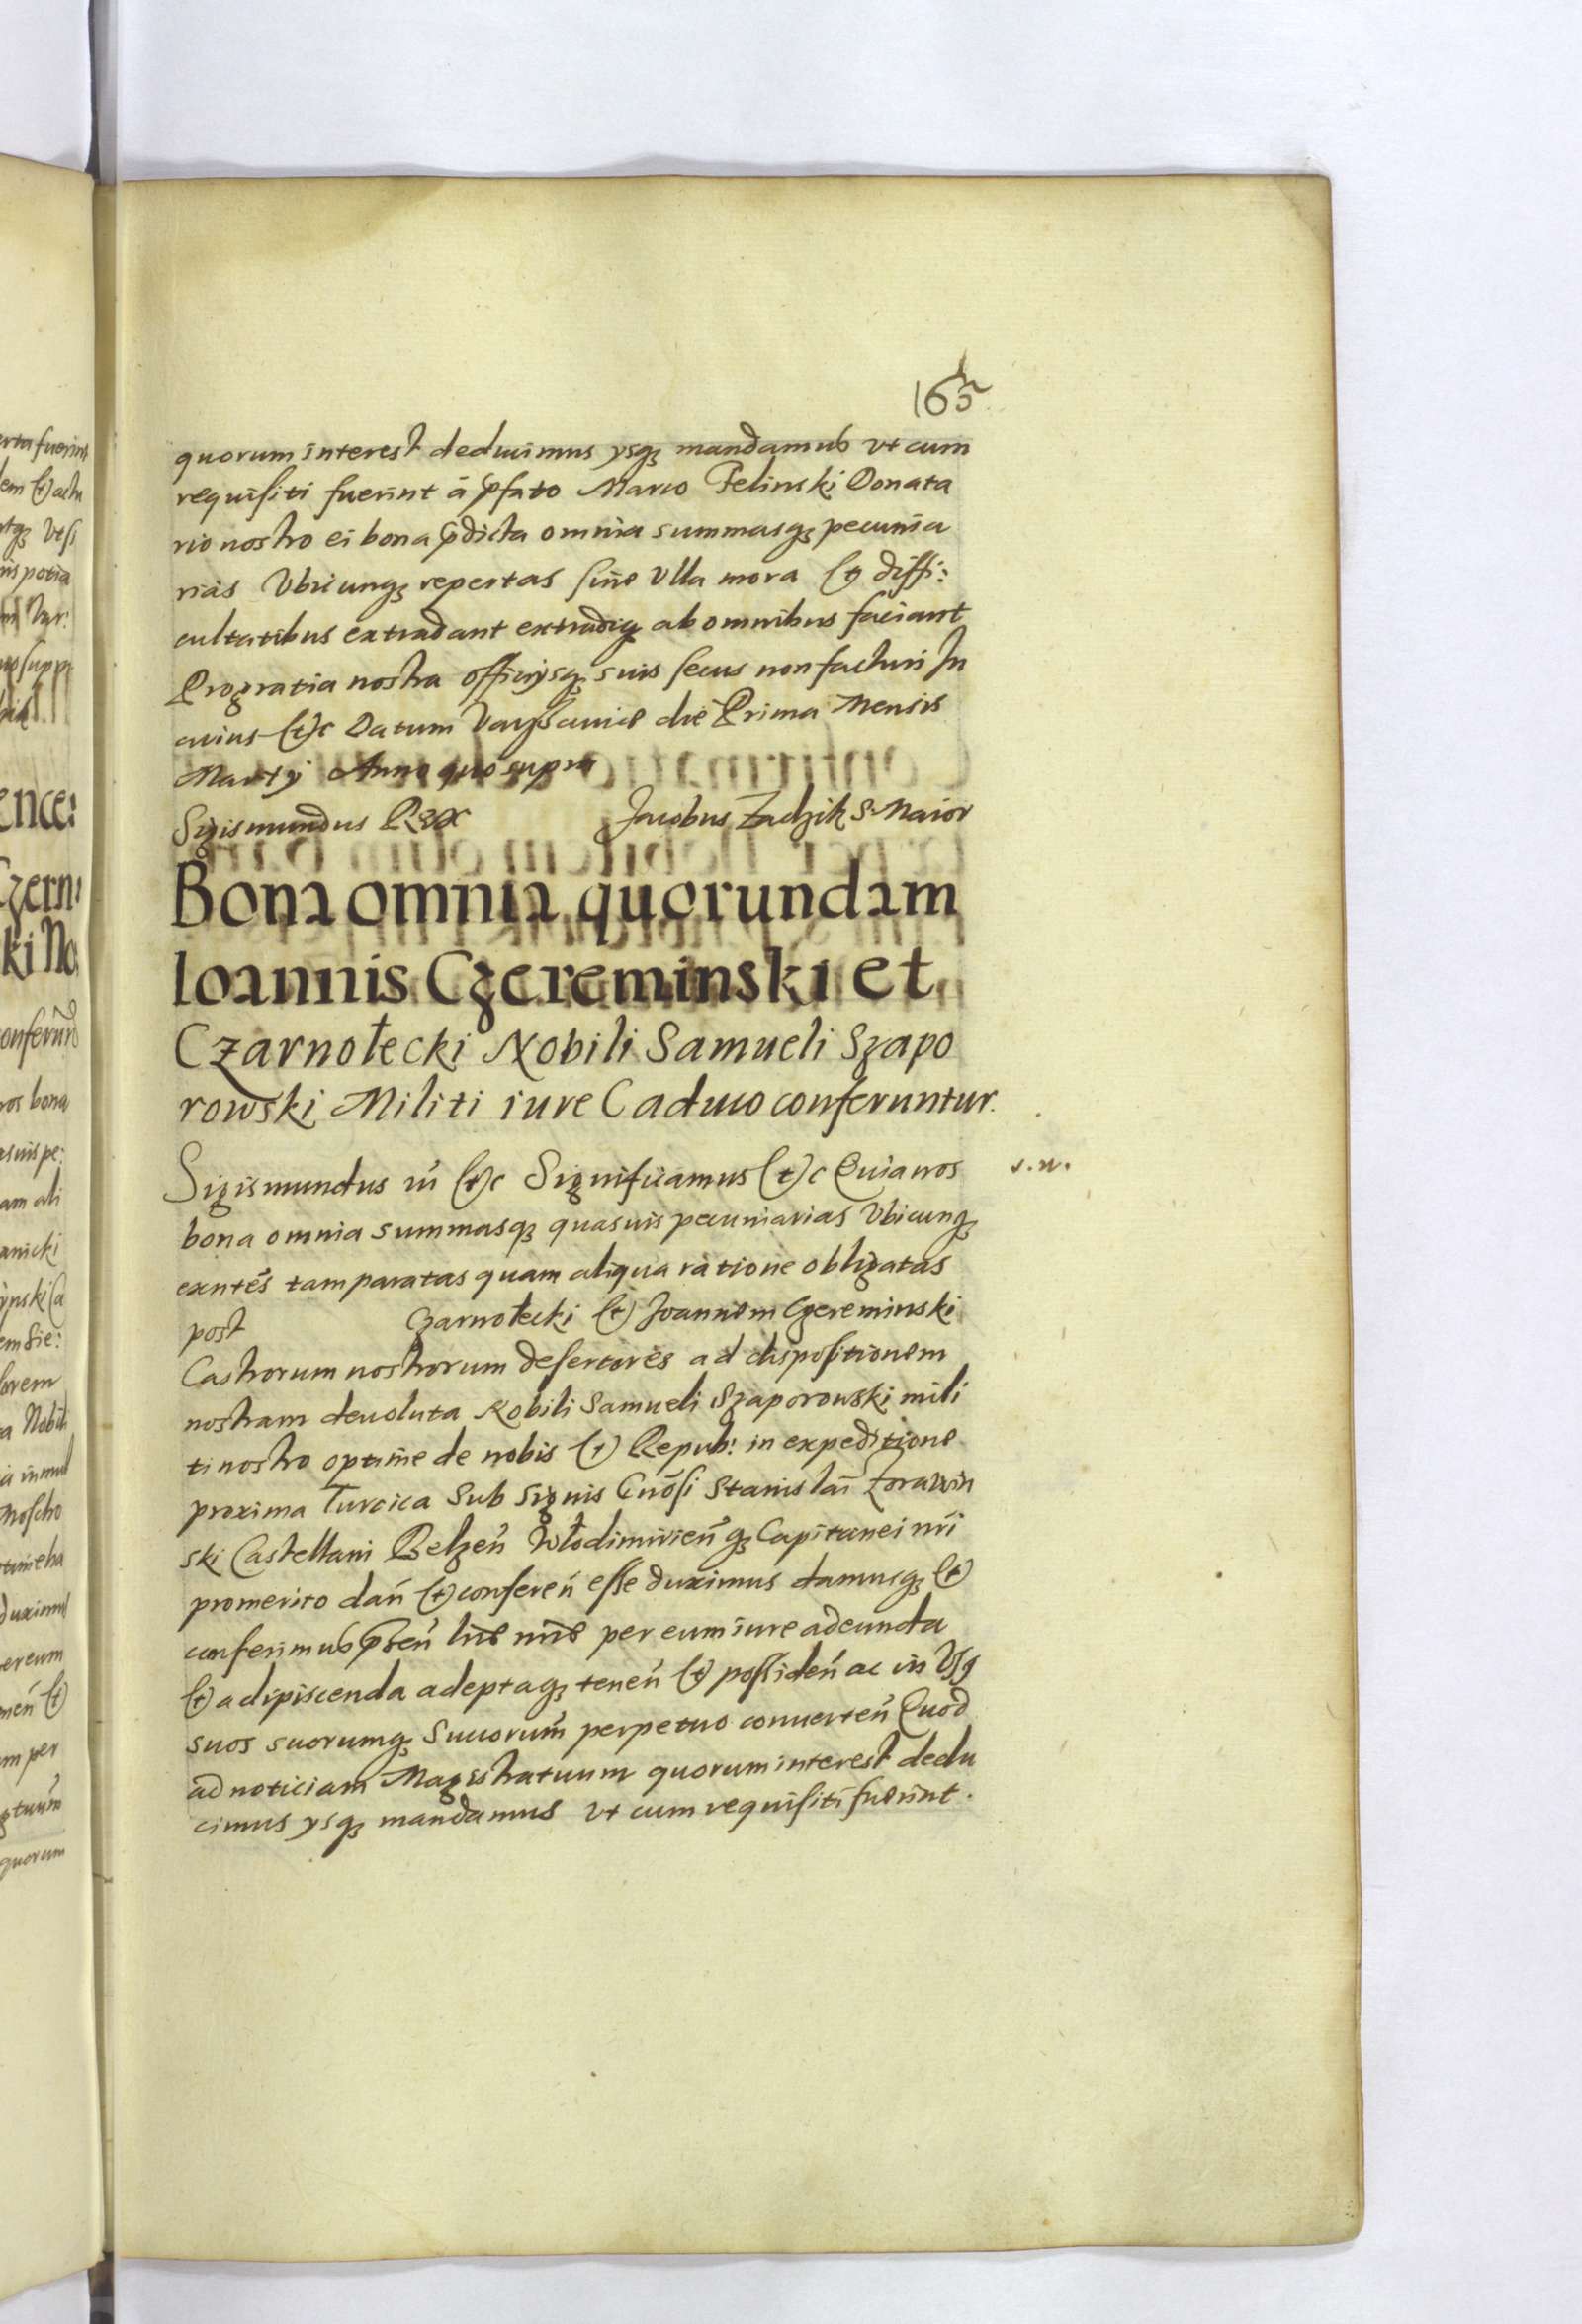 165
quorum interest deducimus ysq₃ mandamus vt cum
requisiti fuerint á p̃fato Marco Felinski Donata
rio nostro ei bona p̃dicta omnia summasq₃ pecunia
rias Vbicunq₃ repertas sine Vlla mora (et) diffi:
cultatibus extradant extradiq₃ ab omnibus faciant
Pro gratia nostra officÿsq₃ suis secus non facturi In
cuius (et)c Datum Varssauiæ die Prima Mensis
Martÿ Anno quo supra
Sigismundus Rex Jacobus Zadzik S. Maior
Bona omnia quorundam
Ioannis Czereminski et
Czarnołecki Nobili Samueli Szapo
rowski Militi iure Caduco conferuntur.
Sigismundus iii (et)c Significamus (et)c Quia nos
s. n.
bona omnia summasq₃ quasuis pecuniarias Vbicunq₃
exn̄tes tam paratas quam aliqua ratione obligatas
post Czarnołecki (et) Joannem Czereminski
Castrorum nostrorum desertores ad dispositionem
nostram deuoluta Nobili Samueli Szaporowski mili
ti nostro optime de nobis (et) Repub: in expeditione
proxima Turcica sub signis Gn̄osi Stanislai Zorawin
ski Castellani Belzen̄ Włodimirien̄q₃ Capitanei nr̄i
promerito dan̄ (et) conferen̄ esse duximus damusq₃ (et)
conferimus p̃sen̄ lr̄is nr̄is per eum iure adeunda
(et) adipiscenda adeptaq₃ tenen̄ (et) possiden̄ ac in Vsq
suos suorumq₃ Succorum̄ perpetuo conuerten̄ Quod
ad noticiam Magistratuum quorum interest dedu
cimus ysq₃ mandamus vt cum requisiti fuerint.